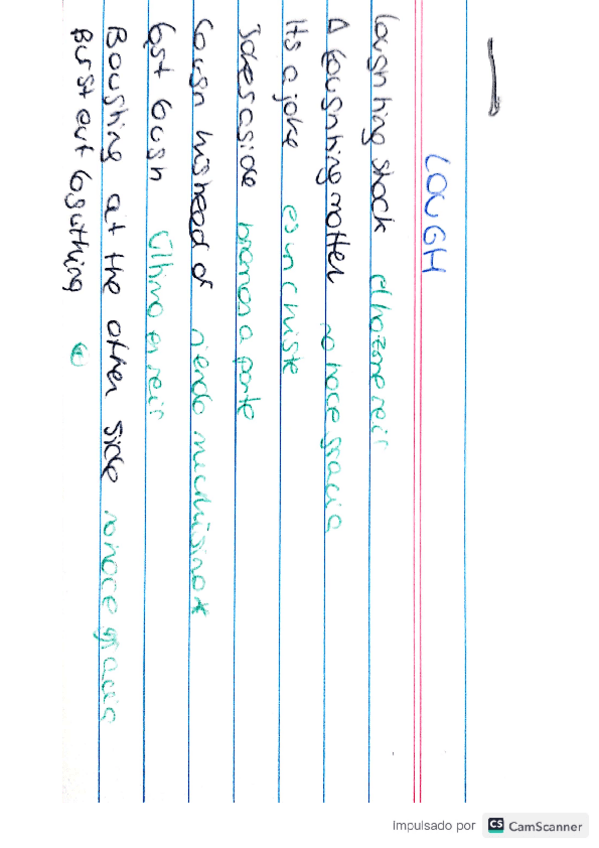 LOUGH
Loughting stock el hazme reir
A Loughting matter no hace gracia
Its a joke es un chiste
Jokes aside bromas a parte
Lough his head of riendo muchisimo
Last Lough Último en reir
Loughing at the other side no hace gracia
Burst out Loughting
Impulsado por CS CamScanner